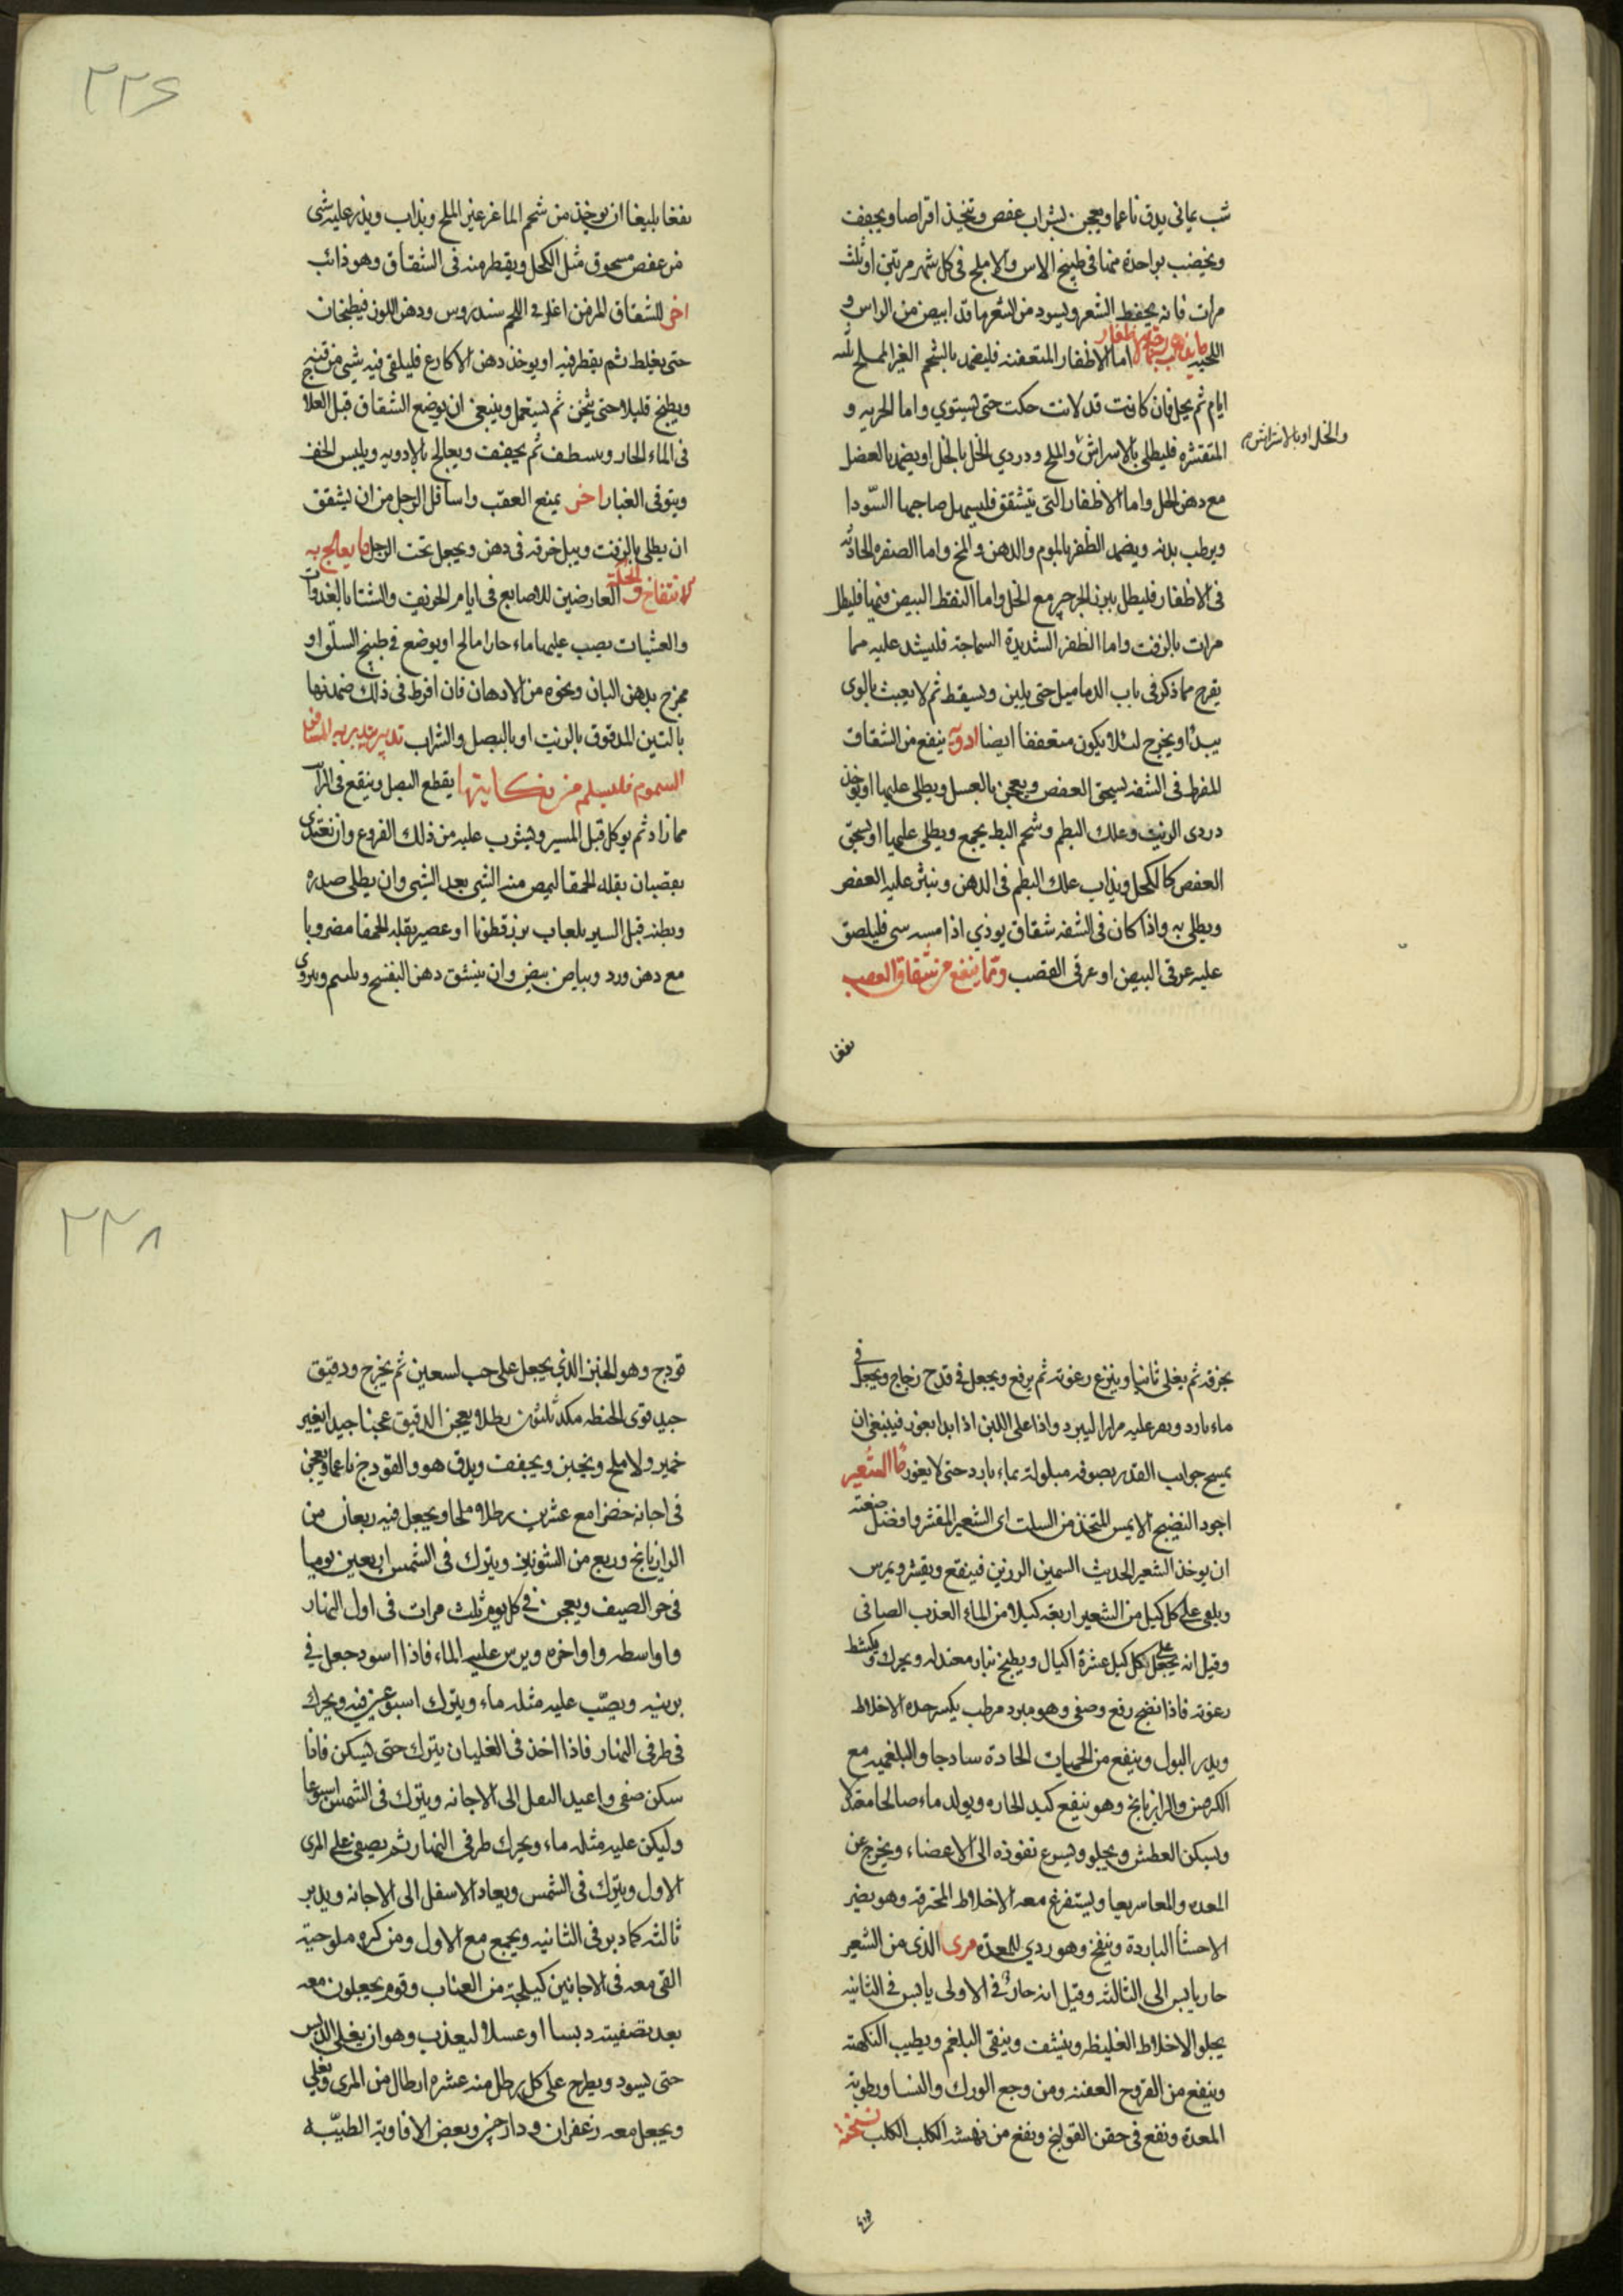 شب يمانى يدق ناعما ويعجن بشراب عفص ويتخذ اقراصا ويجفف
ويخضب بواحدة منها فى طبيخ الاس والاملج فى كل شهر مرتين او ثلث
مرات فانه يحفظ الشعر ويسود من الشعر ما قد ابيض من الراس و
اللحيه اما الاظفار المتعفنه فليضمد بالشحم الغير المملح ثلثه
ايام ثم يحل فان كانت قد لانت حكت حتى يستوي واما الجربه و
المتقشره فليطلى بالاسراش والملح ودردي الخل بالخل او يضمد بالعضل
والخل او بالاشراش
مع دهن الحل واما الاظفار التى يتشقق فليسهل صاحبها السّودا
ويرطب بدنه ويضمد الظفر بالموم والدهن والمخ واما الصفره الحادثه
فى الاظفار فليطل ببزر الجرجير مع الخل واما النقط البيض فيها فليطل
مرات بالزفت واما الظفر الشديدة السماجة فليشد عليه مما
يقرح مما ذكر فى باب الدماميل حتى يلين ويسقط ثم لا يعبث بالوى
يبدا ويخرج لئلا يكون متعففا ايضا ادويه ينفع من الشقاق
المفرط فى الشفه يسحق العفص ويعجن بالعسل ويطلى عليها او يوخذ
دردى الزيت وعلك البطم وشحم البط يجمع ويطلى عليها او يسحق
العفص كالكحل ويذاب علك البطم فى الدهن وينثر عليه العفص
ويطلى به واذا كان فى الشفه شقاق يوذي اذا مسه سى فليلصق
عليه غرقى البيض او غرقى القصب ومما ينفع من شقاق العصب
نفعا
٢٢٦
نفعا بليغا ان يوخذ من شحم الماعز غير المملح ويذاب ويذر عليه شى
من عفص مسحوق مثل الكحل ويقطر منه فى الشقاق وهو ذائب
اخر للشقاق المزمن اغلى فى اللحم سندروس ودهن اللوز فيطبخان
حتى يغلظ ثم يقطر فيه او يوخذ دهن الاكارع فليلقى فيه شى من قنبيج
ويطبخ قليلا حتى يثخن ثم يستعمل وينبغى ان يوضع الشقاق قبل العلا
فى الماء الحار وينظف ثم يجفف ويعالج بالادويه ويلبس الخف
ويتوقى الغبار اخر يمنع العقب واسافل الرجل من ان يشقق
ان يطلى بالزفت ويبل خرقه فى دهن ويجعل تحت الرجل ما يعالج به
الانتفاخ والحكة العارضين للاصابع فى ايام الخريف والشتا بالغدوات
والعشيات يصب عليها ماء حارا مالح او يوضع فى طبيخ السلق او
يمزج بدهن البان ونحوه من الادهان فان افرط فى ذلك ضمدتها
بالتين المدقوق بالزيت او بالبصل والشراب تدبير يتدبر به المسافر
السموم فليسلم من نكايتها يقطع البصل وينقع فى الرائب
مما زاد ثم يوكل قبل المسير ويشرب عليه من ذلك القروع وان تغتذى
بقضبان بقله الحمقا ليمص منه الشى بعد الشى وان يطلى صدره
وبطنه قبل السير بلعاب بزرقطونا او عصير بقله الحمقا مضروبا
مع دهن ورد وبياض بيض وان ينشق دهن البنفسج ويلسم ويروى
بخرقه ثم يغلى ثانيا وينزع رغوته ثم يرفع ويجعل فى قدح زجاج ويجعل فى
ماء بارد ويمر عليه مرارا ليبرد واذا على اللبن اذا بدا يفور فينبغى ان
يمسح جوانب القدر بصوفه مبلولة بماء بارد حتى لا يفور ما الشعير
اجود النضيج الابيض المتخذ من السلت اى الشعير المقشر وافضل صنعته
ان يوخذ الشعير الحديث السمين الرزين فينقع ويقشر ويمرس
ويلقى على كل كيل من الشعير اربعة كيلا من الماء العذب الصافى
وقيل انه يجعل على كل كيل عشرة اكيال ويطبخ بنار معتدله ويحرك ويكشط
رغوته فاذا نضج رفع وصفى وهو مبرد مرطب يكسر حدة الاخلاط
ويدر البول وينفع من الحميات الحادة ساذجا والبلغميه مع
الكرفس والرازيانج وهو ينفع كبد الحاره ويولد ماء صالحا معتدلا
ويسكن العطش ويجلو ويسرع نفوذه الى الاعضاء ويخرج عن
المعده والمعا سريعا ويستفرغ معه الاخلاط المحترقه وهو يضر
الاحشا الباردة وينفخ وهو ردي للمعدة مرى الذى من الشعير
حار يابس الى الثالثه وقيل انه حار فى الاولى يابس فى الثانيه
يجلو الاخلاط الغليظه وينشف وينقى البلغم ويطيب النكهته
وينفع من القروح العفنه ومن وجع الورك والنسا ورطوبة
المعدة ونفع فى حقن القولنج ونفع من نهشه الكلب الكلب نسخته
٢٢٨
قودج وهو الخبز الذي يجعل على حب لسعين ثم يخرج ودقيق
جيد قوى الحنطه مكد ثلثون رطلا ويعجن الدقيق عجنا جيدا بغير
خمير ولا ملح ويخبز ويجفف ويدق هو والفودج ناعما ويعجن
فى اجانه خضرا مع عشرين رطلا ملحا ويجعل فيه ربعان من
الرازيانج وربع من الشونيز ويترك فى الشمس اربعين يوما
فى حر الصيف ويعجن فى كل يوم ثلث مرات فى اول النهار
واواسطه واواخره ويرس عليه الماء فاذا اسود جعل فى
برنيه ويصّب عليه مثله ماء ويترك اسبوعين فيه ويحرك
فى طرفى النهار فاذا اخذ فى الغليان يترك حتى يسكن فاذا
سكن صفى واعيد الثفل الى الاجانه ويترك فى الشمس اسبوعا
وليكن عليه مثله ماء ويحرك طرفى النهار ثم يصفى على المرى
الاول ويترك فى الشمس ويعاد الاسفل الى الاجانه ويدبر
ثالثه كما دبر فى الثانيه ويجمع مع الاول ومن كره ملوحيته
القى معه فى الاجانين كيلجة من العناب وقوم يجعلون معه
بعد تصفيته دبسا او عسلا ليعذب وهو ان يغلى الدبس
حتى يسود ويطرح على كل رطل منه عشره ارطال من المرى ويغلى
ويجعل معه زعفران ودارصينى وبعض الافاويه الطيّبه